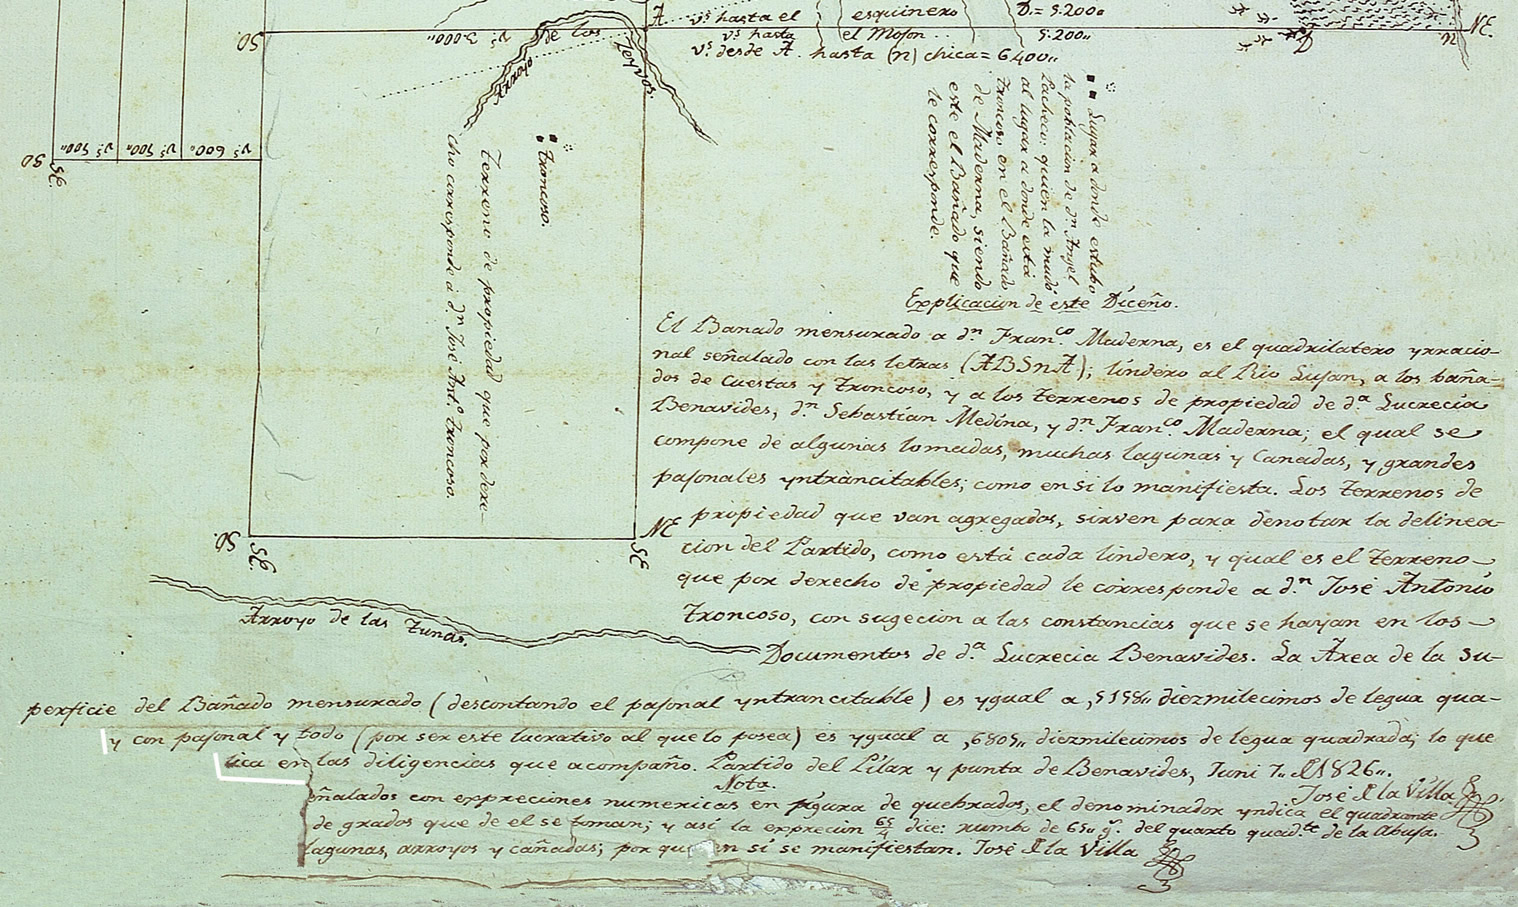 A vˢ hasta el esquinero D.= 5.200„
vˢ hasta el Mojon . . . 5.200„
vˢ desde A hasta (n) chica = 6400„
NE.
n
SO
vˢ 3.000„
Arroyo de los Zeyvos
SO
vˢ 500„
vˢ 500„
vˢ 600„
SE.
Troncoso.
Terreno de propiedad que por dere-
cho corresponde á dⁿ José Antº Troncoso.
Lugar a donde estubo
la poblacion de dⁿ Angel
Pacheco: quien la mudó
al lugar a donde está
Troncoso en el Bañado
de Maderna, siendo
este el Bañado que
le corresponde.
Explicacion de este Diceño.
El Banado mensurado a dⁿ Franᶜᵒ Maderna, es el quadrilatero yrracio-
nal señalado con las letras (ABSnA); lindero al Rio Lujan, a los baña-
dos de Cuestas y Troncoso, y a los terrenos de propiedad de dª Lucrecia
Benavides, dⁿ Sebastian Medina, y dⁿ Franᶜᵒ Maderna; el qual se
compone de algunas lomadas, muchas lagunas y Canadas, y grandes
pajonales yntrancitables; como en si lo manifiesta. Los terrenos de
propiedad que van agregados, sirven para denotar la delinea-
cion del Partido, como está cada lindero, y qual es el terreno
que por derecho de propiedad le corresponde a dⁿ José Antonio
Troncoso, con sugecion a las constancias que se hayan en los
Documentos de dª Lucrecia Benavides. La Area de la su-
SO.
SE.
NE
SE
Arroyo de las Tunas.
perficie del Bañado mensurado (descontando el pajonal yntrancitable) es ygual a diezmilecimos de legua qua-
y con pajonal y todo (por ser este lucrativo al que lo posea) es ygual a ,6805„ diezmilecimos de legua quadrada; lo que
tica en las diligencias que acompaño. Partido del Pilar y punta de Benavides, Juni 7„ d 1826„.
José d la Villa
Nota.
eñalados con expreciones numericas en figura de quebrados, el denominador yndica el quadrante
de grados que de el se toman; y asi la exprecion 65/4 dice: rumbo de 65„ gˢ. del quarto quadᵗᵉ de la Abuja.
lagunas, arroyos y cañadas; por que en si se manifiestan. José d la Villa